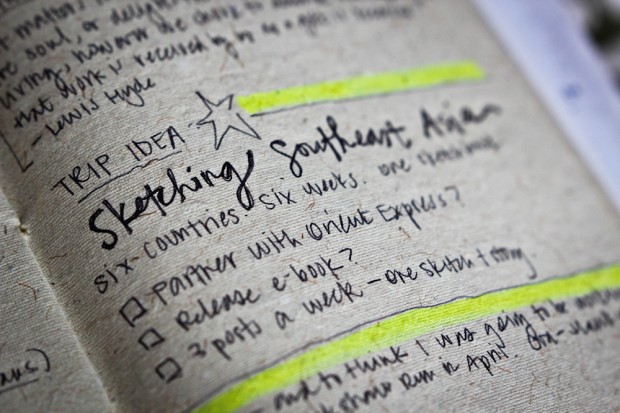 matters
soul, or
living, however we choose to
that work is received by us as a gift is
- Lewis Hyde
TRIP IDEA
Sketching Southeast Asia
six countries. six weeks. one
☐ partner with Orient Express?
☐ release e-book?
☐ 3 posts a week - one sketch + story
and to think I was going to be
run in April.